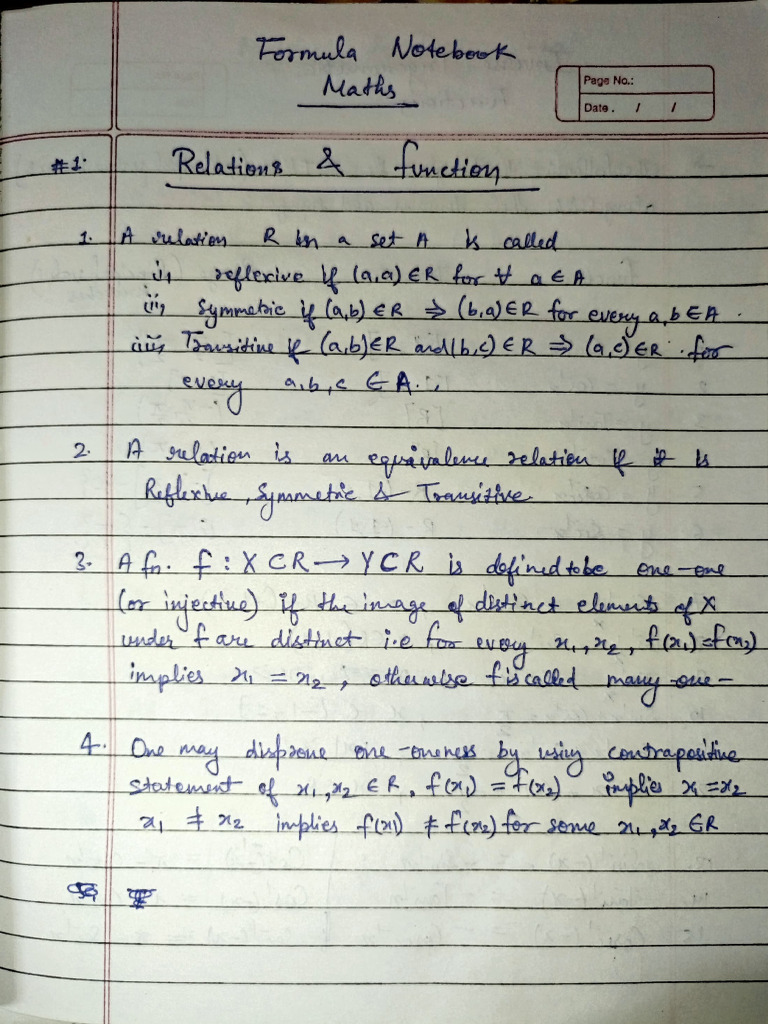 Formula Notebook
Maths
Page No.:
Date. / /
#1. Relations & function
1. A relation R on a set A is called
i, reflexive if (a,a) ∈ R for ∀ a ∈ A
ii, Symmetric if (a,b) ∈ R ⇒ (b,a) ∈ R for every a, b ∈ A.
iii, Transitive if (a,b) ∈ R and (b,c) ∈ R ⇒ (a,c) ∈ R. for
every a,b,c ∈ A.
2. A relation is an equivalence relation if it is
Reflexive, Symmetric & Transitive.
3. A fn. f : X ⊂ R → Y ⊂ R is defined to be one-one
(or injective) if the image of distinct elements of X
under f are distinct i.e for every x₁, x₂, f(x₁) = f(x₂)
implies x₁ = x₂, otherwise f is called many-one-
4. One may disprove one-oneness by using contrapositive
statement of x₁, x₂ ∈ R, f(x₁) = f(x₂) implies x₁ = x₂
x₁ ≠ x₂ implies f(x₁) ≠ f(x₂) for some x₁, x₂ ∈ R